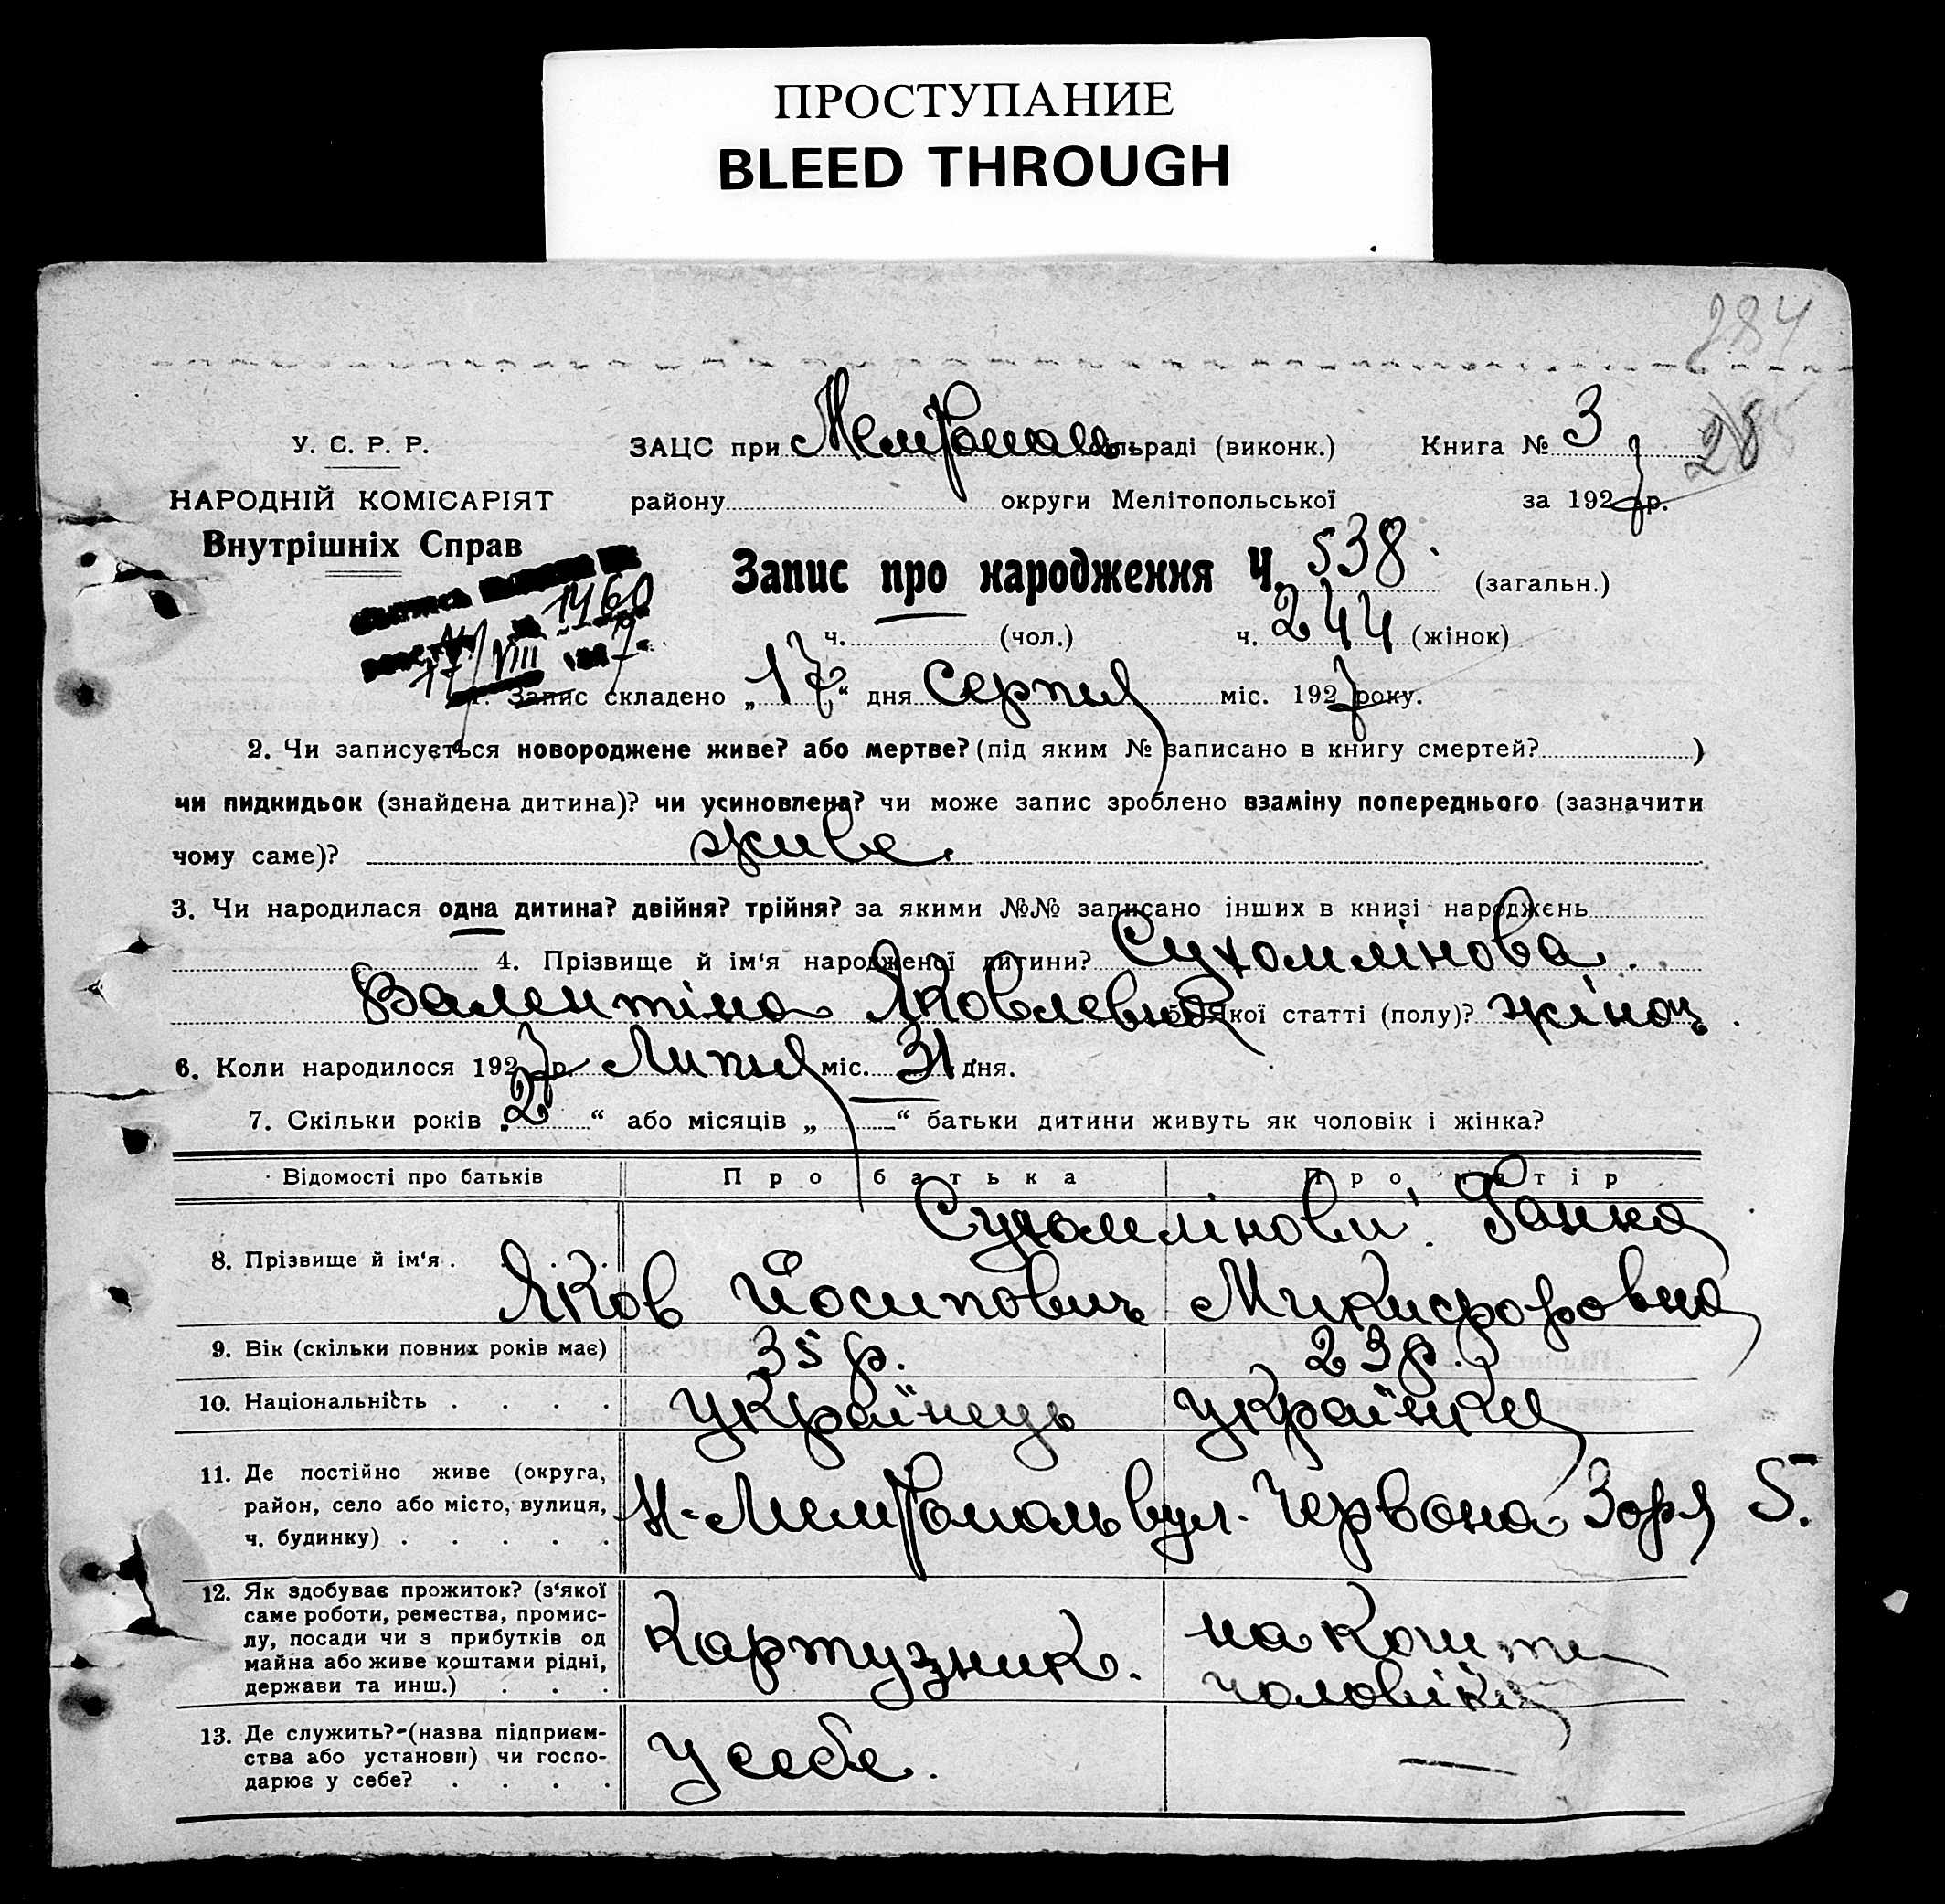 ПРОСТУПАНИЕ
BLEED THROUGH
284
У. С. Р. Р. ЗАЦС при Мелітополь сільраді (виконк.) Книга № 3
НАРОДНІЙ КОМІСАРІЯТ району округи Мелітопольської за 1927 р.
Внутрішніх Справ
Запис про народження Ч. 538. (загальн.)
1460
ч. (чол.) ч. 244 (жінок)
17/VIII 7
1. Запис складено „17“ дня Серпня міс. 1927 року.
2. Чи записується новороджене живе? або мертве? (під яким № записано в книгу смертей? )
чи пидкидьок (знайдена дитина)? чи усиновлена? чи може запис зроблено взаміну попереднього (зазначити
чому саме)? живе.
3. Чи народилася одна дитина? двійня? трійня? за якими №№ записано інших в книзі народжень
4. Прізвище й ім'я народженої дитини? Сухомлінова
Валентіна Яковлевна якої статті (полу)? жіноч.
6. Коли народилося 1927 р. Липня міс. 31 дня.
7. Скільки років „2“ або місяців „ “ батьки дитини живуть як чоловік і жінка?
Відомості про батьків Про батька Про матір
Сухомлінови. Ганна
8. Прізвище й ім'я . . . . Яков Йосипович Микифоровна
9. Вік (скільки повних років має) 35 р. 23 р.
10. Національність . . . . українець українка
11. Де постійно живе (округа,
район, село або місто, вулиця, Н-Мелітополь вул. Червона Зоря 5.
ч. будинку) . . . . .
12. Як здобуває прожиток? (з'якої
саме роботи, ремества, промис- на кошти
лу, посади чи з прибутків од Картузник.
майна або живе коштами рідні, чоловіка
держави та инш.) . . .
13. Де служить?-(назва підприєм-
ства або установи) чи госпо- у себе. —
дарює у себе? . . . .